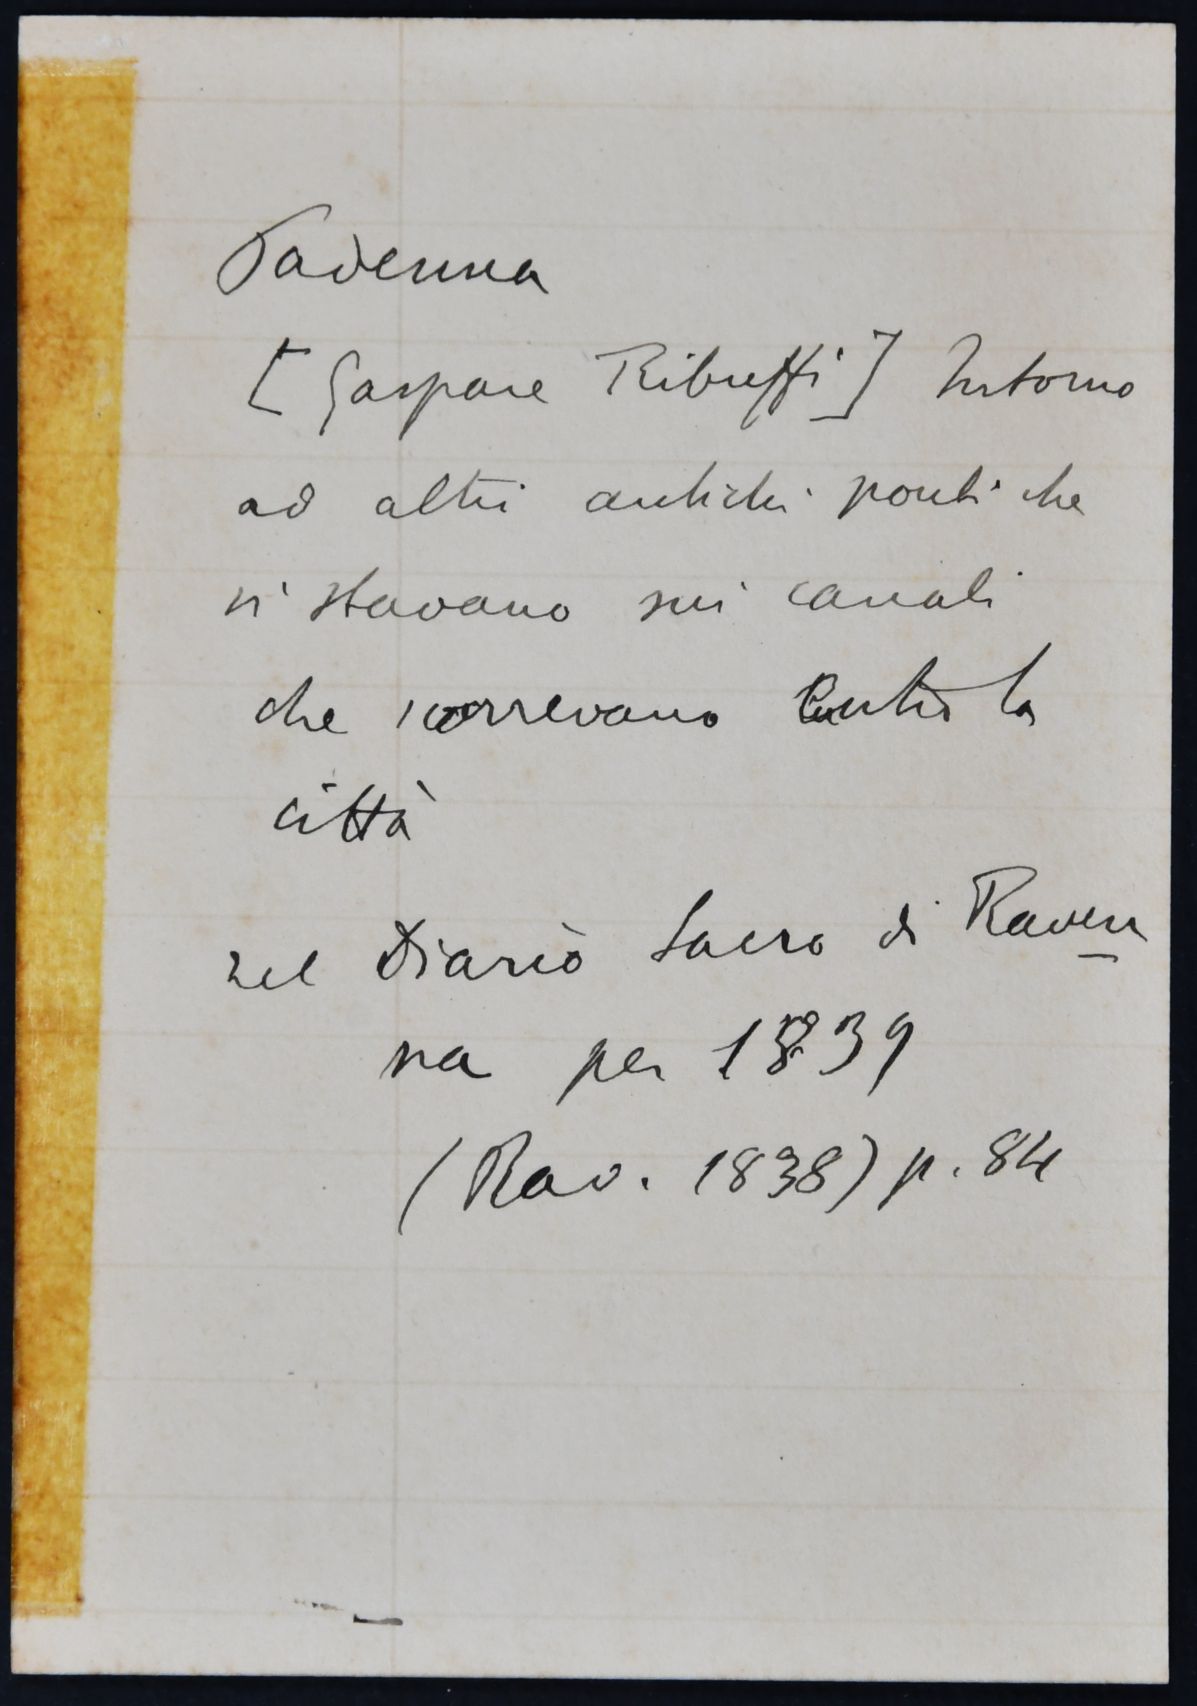 Padenna
[Gaspare Ribuffi] Intorno
ad altri antichi ponti che
vi stavano sui canali
che scorrevano entro la
città
nel Diario Sacro di Raven
na per 1839
(Rav. 1838) p. 84